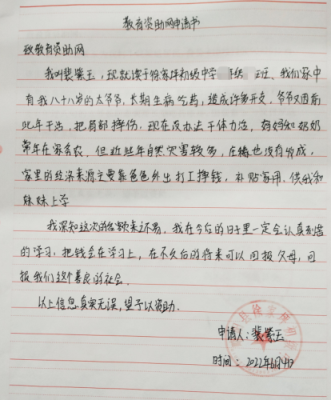 教育资助网申请书
致教育资助网
我叫裴紫玉，现就读于徐家坪初级中学 班。我们家中
有我八十八岁的太爷爷，长期生病吃药，造成许多开支，爷爷又因前
几年干活，把肩部摔伤，现在没办法干体力活，妈妈和奶奶
常年在家务农，但近些年自然灾害较多，庄稼也没有收成，
家里的经济来源主要靠爸爸外出打工挣钱，补贴家用，供我和
妹妹上学
我深知这次的 来不易，我在今后的日子里一定会认真刻苦
的学习，把钱全在学习上，在不久的将来可以回报父母，回
报我们这个善良的社会。
以上信息真实无误，望予以资助。
申请人：裴紫玉
时间：2022年6月4日